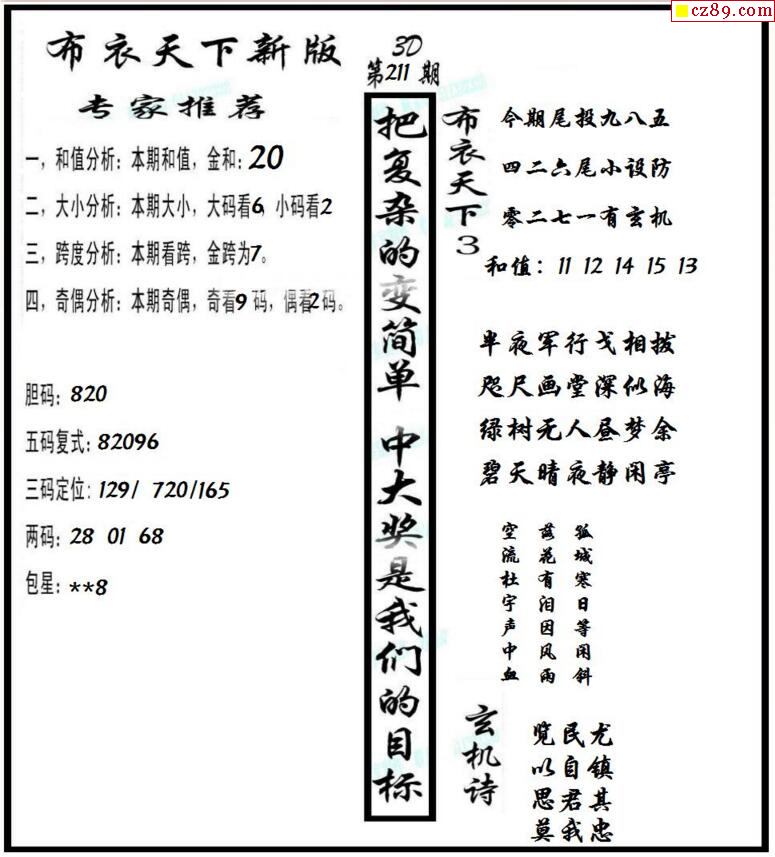 cz89.com
布衣天下新版
专家推荐
一，和值分析：本期和值，金和：20
二，大小分析：本期大小，大码看6，小码看2
三，跨度分析：本期看跨，金跨为7。
四，奇偶分析：本期奇偶，奇看9码，偶看2码。
胆码：820
五码复式：82096
三码定位：129/ 720/165
两码：28 01 68
包星：**8
3D
第211期
把复杂的变简单 中大奖是我们的目标
布衣天下3
今期尾投九八五
四二六尾小设防
零二七一有玄机
和值：11 12 14 15 13
半夜军行戈相拔
咫尺画堂深似海
绿树无人昼梦余
碧天晴夜静闲亭
孤城寒日等闲斜
落花有泪因风雨
空流杜宇声中血
玄机诗
览民尤
以自镇
思君其
莫我忠